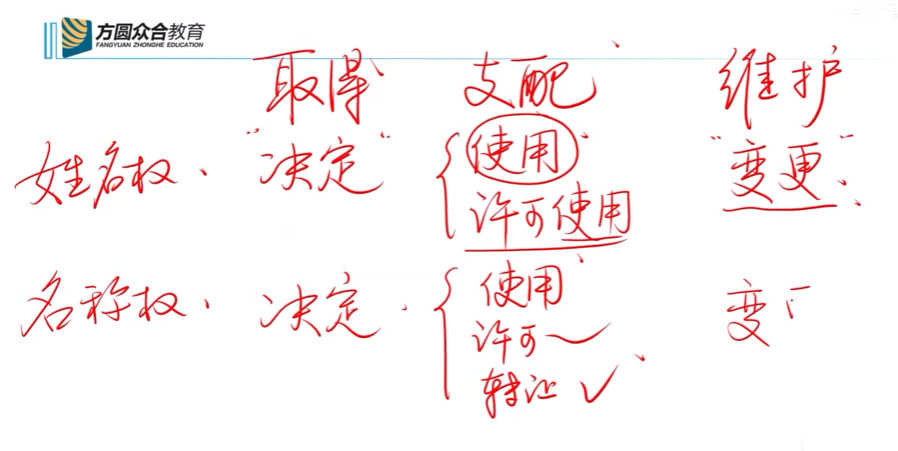 方圆众合教育
FANGYUAN ZHONGHE EDUCATION
取得 支配 维护
姓名权、 "决定" 使用 "变更"
许可使用
名称权、 决定 使用 变
许可～
转让 ✓